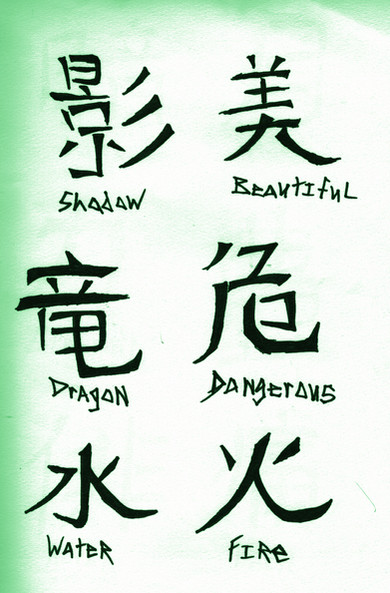 影 美
Shadow Beautiful
竜 危
Dragon Dangerous
水 火
Water Fire